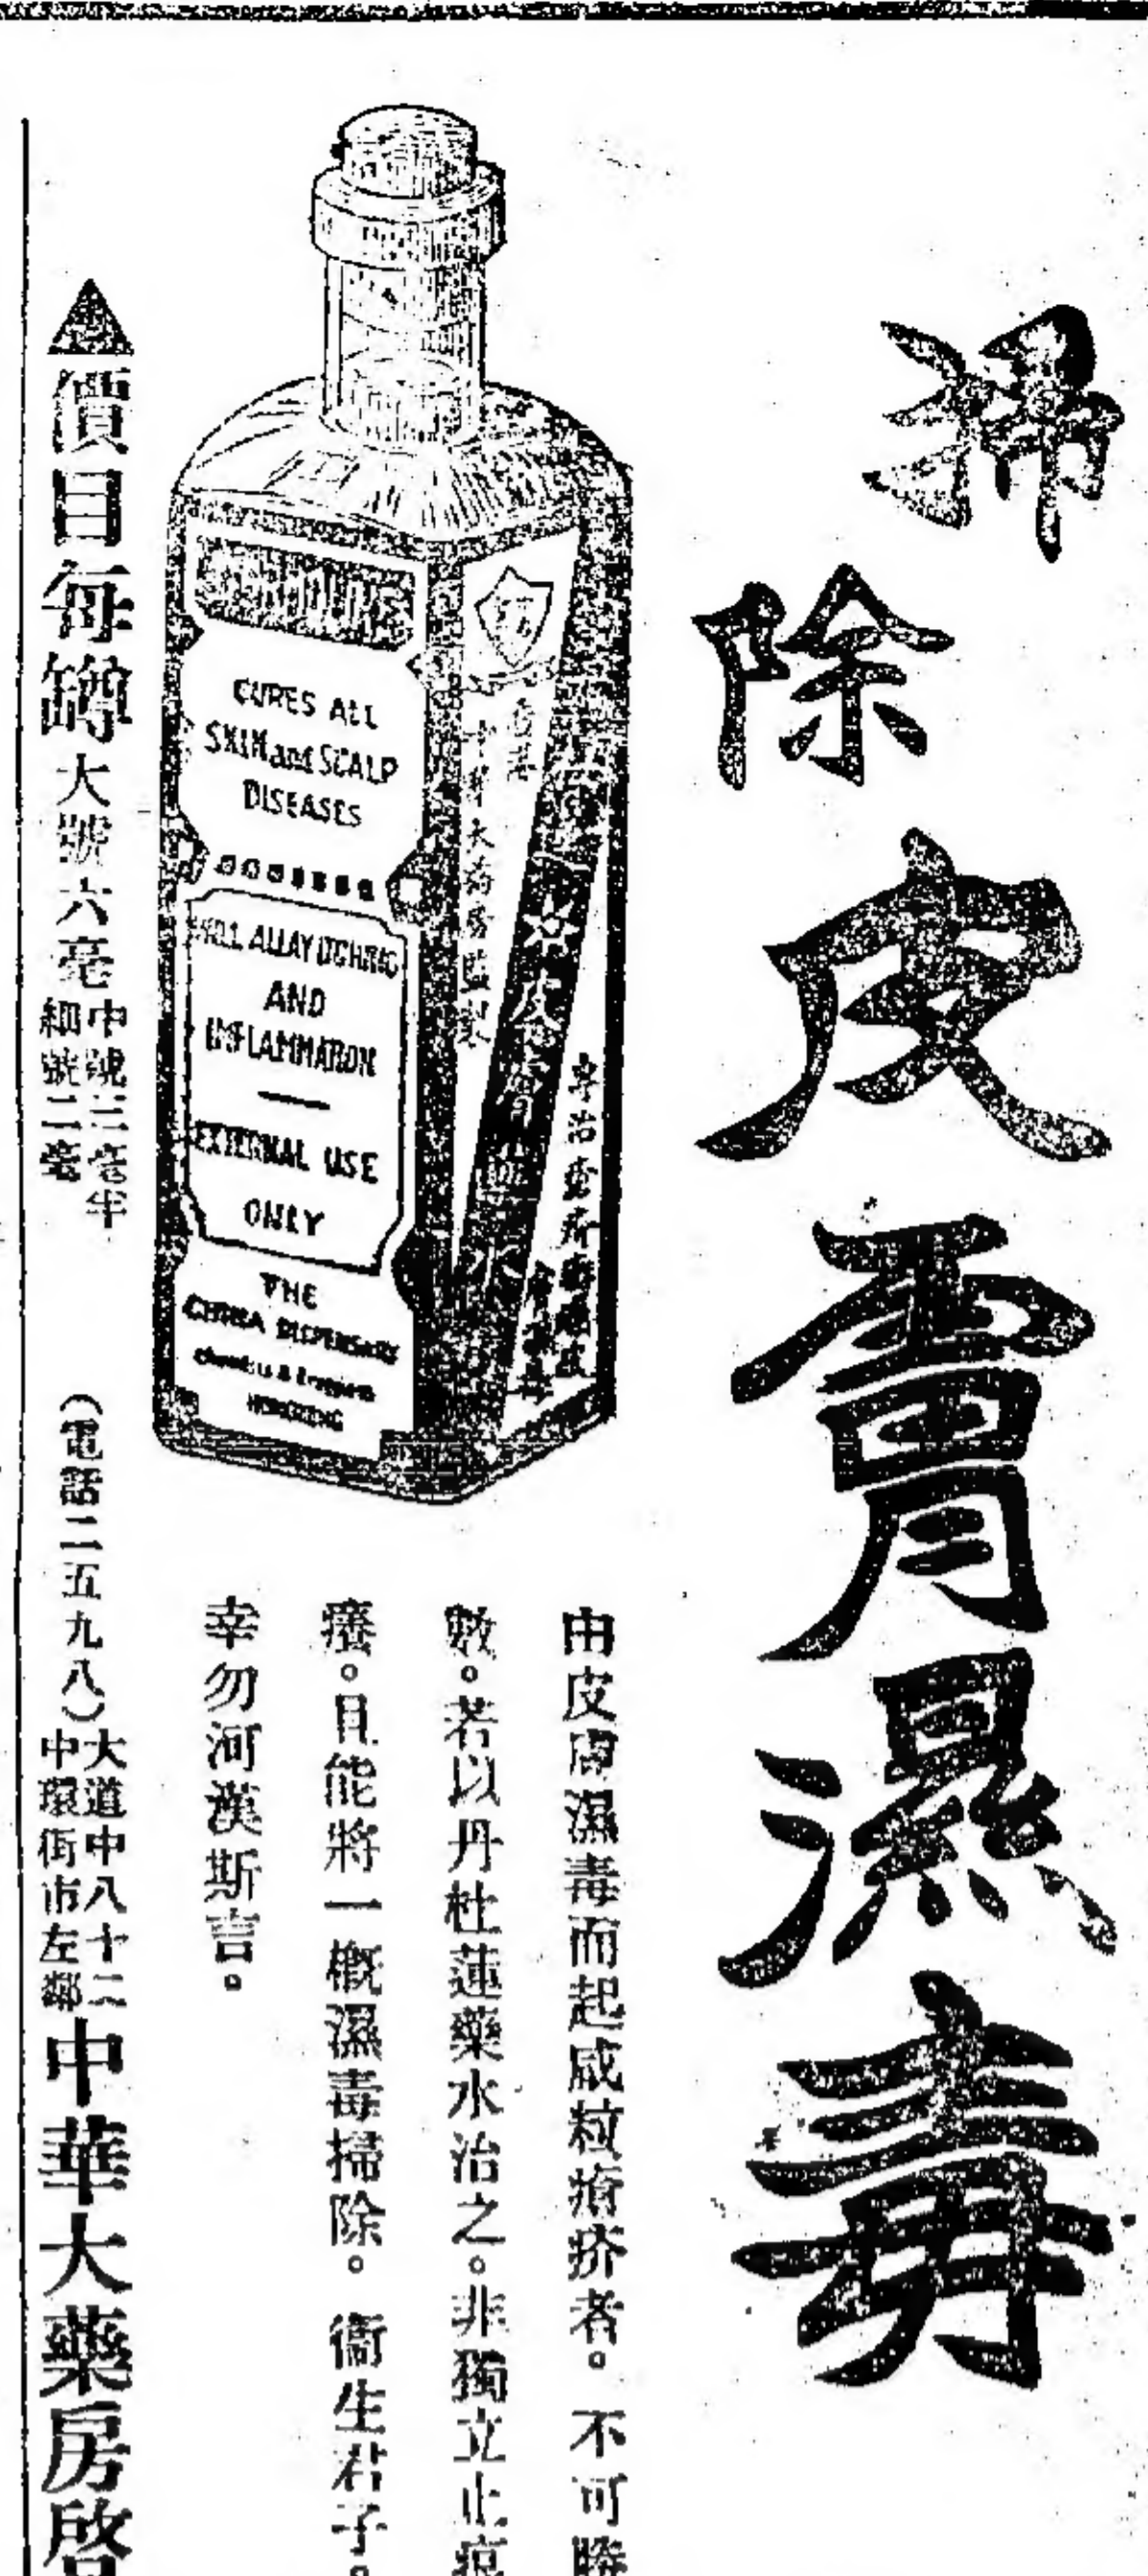 掃除皮膚濕毒
由皮膚濕毒而起或粒瘡疥者。不可勝
數。若以丹杜蓮藥水治之。非獨立止痕
癢。且能將一概濕毒掃除。衞生君子。
幸勿河漢斯言。
CURES ALL
SKIN and SCALP
DISEASES
WILL ALLAY ITCHING
AND
INFLAMMATION
EXTERNAL USE
ONLY
THE
CHINA DISPENSARY
HONGKONG
香港
中華大药房監製
▲價目每罇大號六毫
中號三毫半
細號二毫
(電話二五九八)
大道中八十二
中環街市左鄰
中華大藥房啓